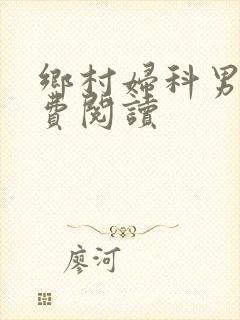 鄉村婦科男
費閱讀
廖河